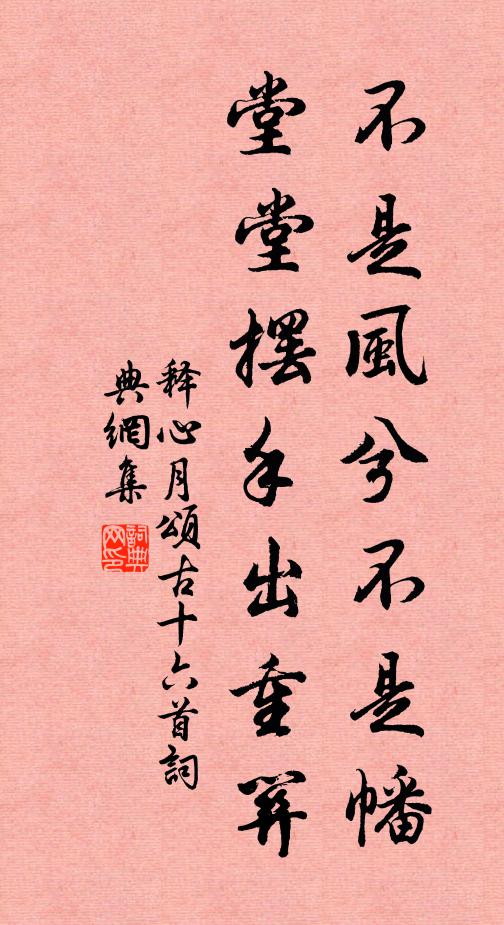 不是風兮不是幡
堂堂擺手出重關
释心月頌古十六首詞
典網集
詞典
网印